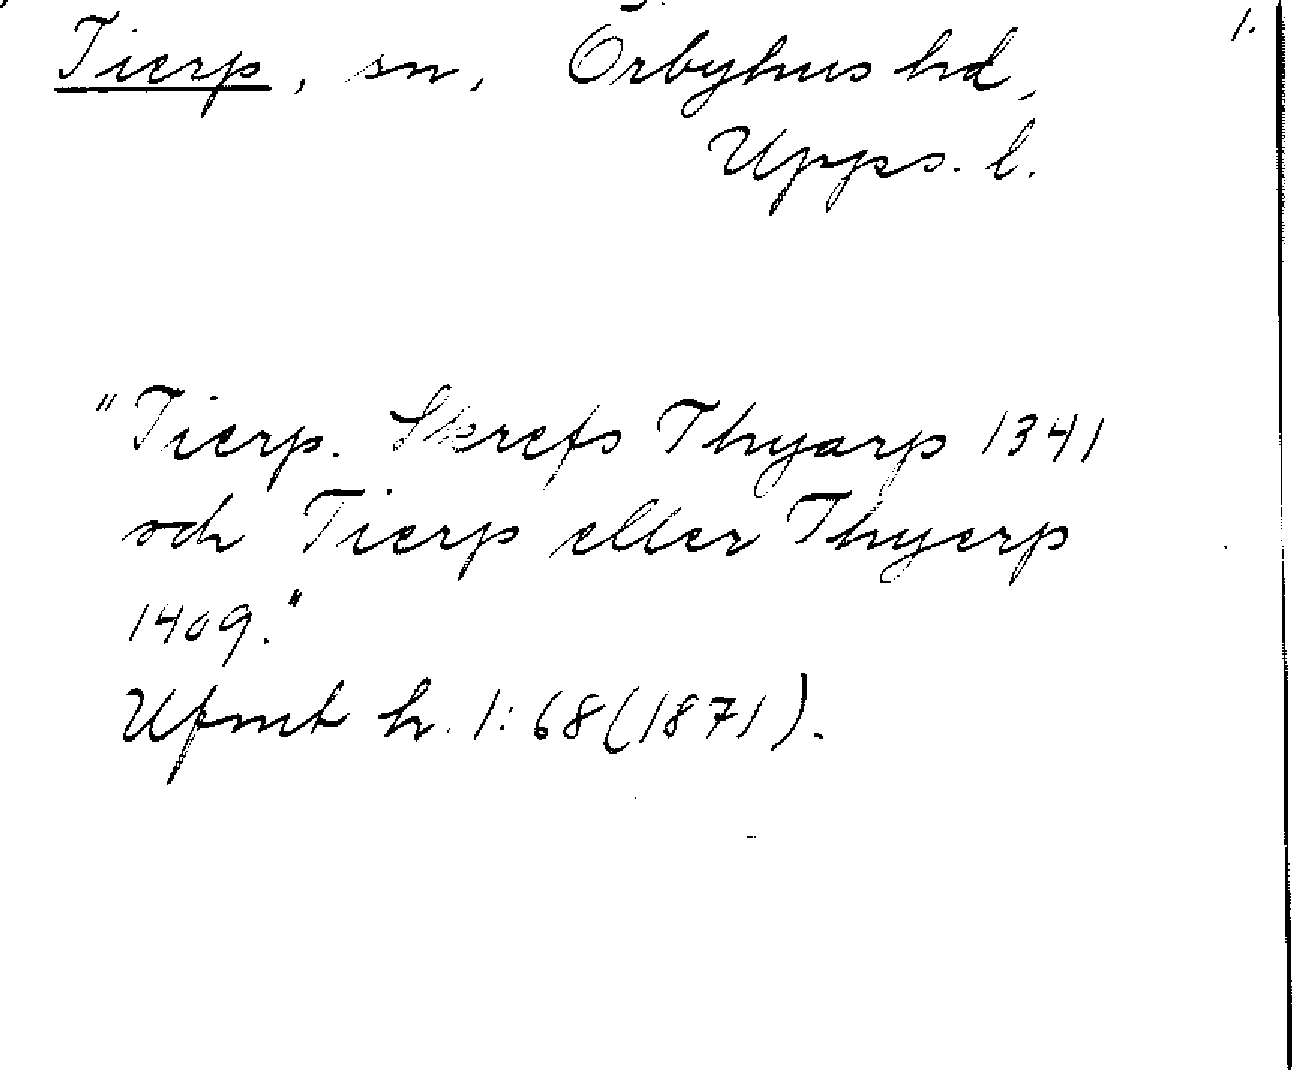 1.
Tierp, sn, Örbyhus hd,
Upps. l.
"Tierp. Skrefs Thyarp 1341
och Tierp eller Thyerp
1409."
Ufmt h. 1:68(1871).